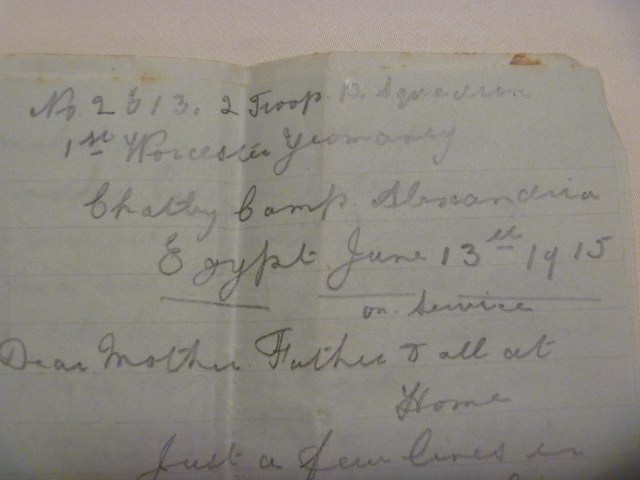 No 2813. 2 Troop D. Squadron
1st Worcester Yeomanry
Chatby Camp Alexandria
Egypt June 13th 1915
on Service
Dear Mother Father & all at
Home
Just a few lines in